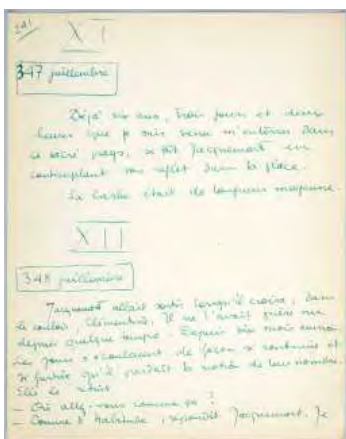 241
XI
347 juillembre
Déjà six ans, trois jours et deux
heures que je suis venu m'enterrer dans
ce sacré pays, se dit Jacquemort en
contemplant son reflet dans la glace.
Sa barbe était de longueur moyenne.
XII
348 juillembre
Jacquemort allait sortir lorsqu'il croisa, dans
le couloir, Clémentine. Il ne l'avait guère vue
depuis quelque temps. Depuis des mois
Les jours s'écoulaient de façon si continue et
si furtive qu'il perdait la notion de leur nombre.
Elle
– Où allez-vous comme ça ?
– Comme d'habitude, répondit Jacquemort. Je